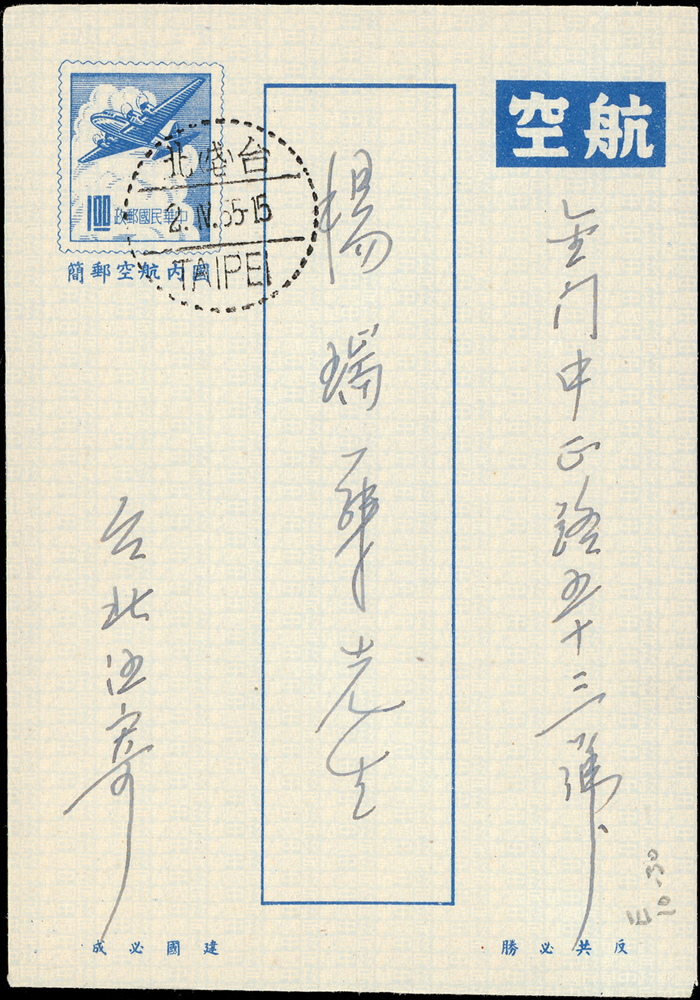 航空
金门中正路五十三號
楊瑞華先生
中華民國郵政
1.00
國內航空郵簡
台北
2.IV.65-15
TAIPEI
台北
寄
反共必勝
建國必成
E
10-30